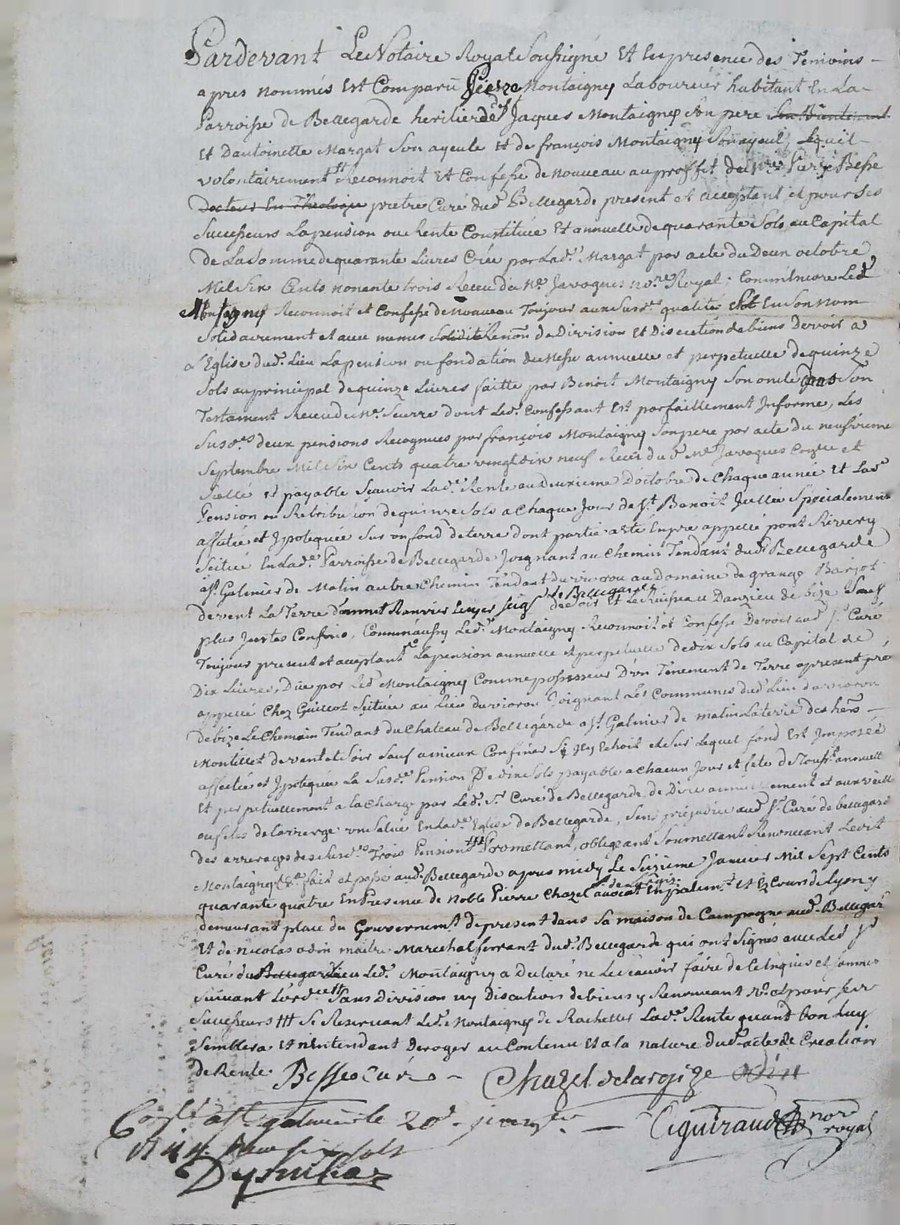 Pardevant Le Notaire Royal Soussigné Et En presence des Temoins
apres nommés Est Comparu Pierre Montaigny Laboureur habitant En La
Parroisse de Bellegarde heritier de Jaques Montaigny son pere
Et Dantoinette Margat Son ayeule et de françois Montaigny Son ayeul, Lequel
volontairement Reconnoit Et Confesse de nouveau au proffit de Mre Pierre Besse
Docteur En Theologie pretre Curé dud. Bellegarde present et acceptant et pour Ses
Successeurs La pension ou Rente Constituée Et annuelle de quarante Sols au Capital
de La Somme de quarante Livres Créé par Lad. Margat par acte du Deux octobre
Mil Six Cents nonante trois Receu du Me Javoques nore Royal; Comm'encore Led.
Montaigny Reconnoit et Confesse de nouveau Toujour aux Susd. qualités Et En Son nom
Solidairement et aux memes Renon de Division Et Discution de biens Devoir a
L'Eglise dud. Lieu La pension ou fondation de Messe annuelle et perpetuelle de quinze
Sols au principal de quinze Livres faitte par Benoit Montaigny Son oncle dans Son
Testament Receu de Me dont Led. Confessant Est parfaittement Informé, Les
Susd. deux pensions Recognues par françois Montaigny Son pere par acte du neufvieme
Septembre Mil Six Cents quatre vingt dix neuf Receu dud. Me Javoques Et
Sçellé et payable Scavoir Lad. Rente au deuxieme D'octobre de Chaque année Et Lad.
Pension ou Retribution de quinze Sols a Chaque Jour de St. Benoit Specialement
affectée et Ypotequée Sur un fond de terre dont partie a Esté En pré appellé pont Révery
Scitué En Lad. Parroisse de Bellegarde Joignant au Chemin Tendant dud. Bellegarde
a St. Galmier de Matin autre Chemin Tendant du vioron au Domaine de grange Barjot
de vent La Terre seig. de Bellegarde de Soir et Le Ruisseau Danzieu de bize Sauf
plus Justes Confins, Comm'aussy Led. Montaigny Reconnoit et Confesse Devoir aud. Sr. Curé
Toujour present et acceptant La pension annuelle et perpetuelle de dix Sols au Capital de
Dix Livres, Duë par Led. Montaigny Comme possesseur D'un Tènement de Terre apresent pré
appellé Chez Guillot Scitué au Lieu du vioron Joignant Les Communes dud. Lieu du vioron
de bize Le Chemain Tendant du Chateau de Bellegarde a St. Galmier de matin La terre des hers
Montillet de vent et Soir Sauf a mieux Confiner Et Sur Lequel fond Est Imposée
affectée et Ypotequée La Susd. Pension De dix Sols payable a Chacun Jour et fete de annuell
Et perpetuellement a la Charge par Led. Sr. Curé de Bellegarde de Dire annuellement et aux veille
ou fetes de la vierge un Salve En Lad. Eglise de Bellegarde, Sans prejudice aud. Sr. Curé de bellegarde
des arrerages des Susd. Trois Pensions Promettant, obligeant Soumettant Renoncant Ledit
Montaigny &a. fait et passé aud. Bellegarde apres midy Le Seizieme Janvier Mil Sept Cents
quarante quatre En Presence de Noble Pierre Chazel avocat En parlemt. et Ez Cours de Lyon y
demeurant place du Gouvernement de present dans Sa maison de Campagne aud. Bellegarde
Et de nicolas odin maitre Marechal ferrant dud. Bellegarde qui ont Signés avec Led. Sr.
Curé Led. Montaigny a declaré ne Le Scavoir faire de ce Enquis et sommé
Suivant L'ordce Sans Division ny Discution de biens y Renoncant &a. et pour Ses
Successeurs Se Reservant Led. Montaigny de Rachetter Lad. Rente quant bon Luy
Semblera Et n'entendant Deroger au Contenu Et a la nature dud. acte de Creation
de Rente Besse Curé Chazel delargize odin
Contlé a St galmier le 20e janvier
Siguiraud nore royal